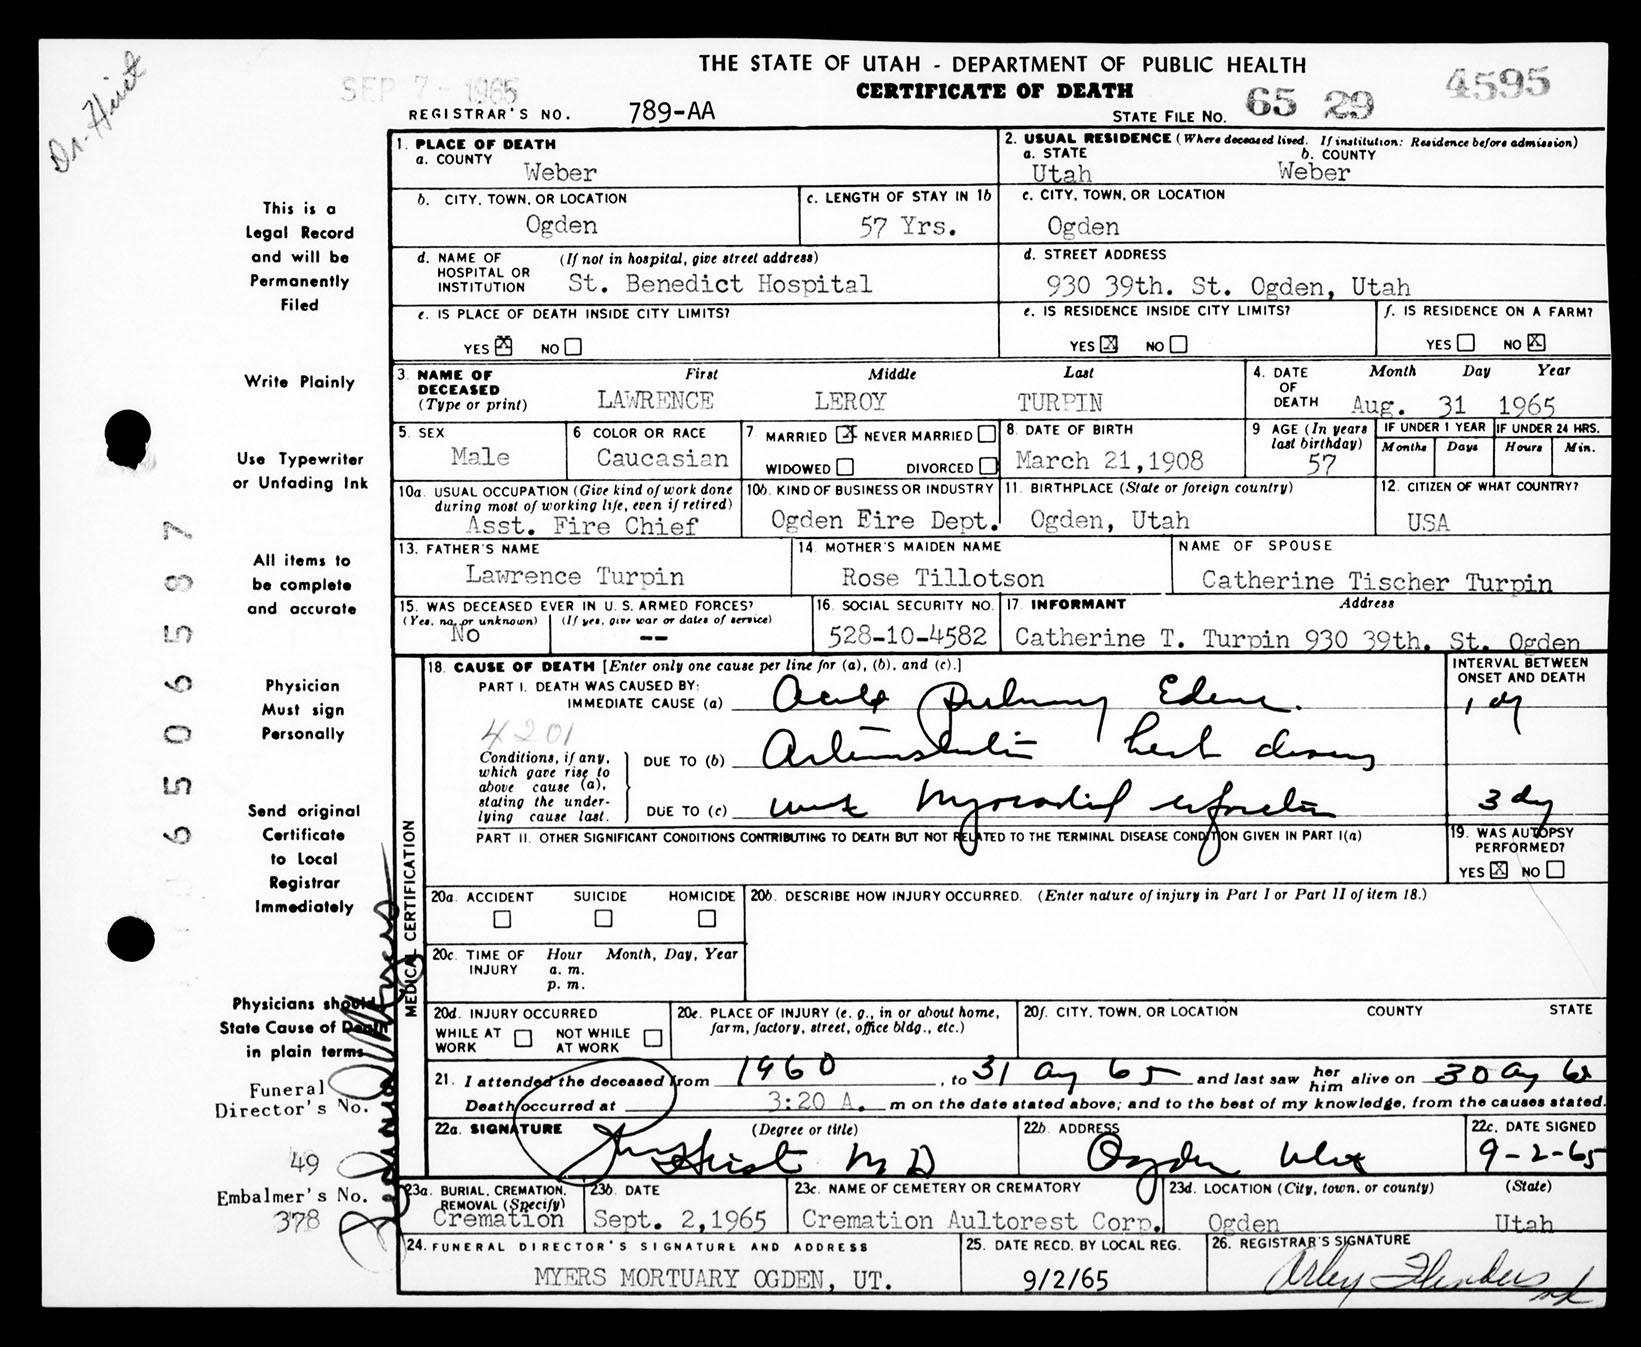 Dr. Hirst
SEP 7 - 1965
THE STATE OF UTAH - DEPARTMENT OF PUBLIC HEALTH
CERTIFICATE OF DEATH
4595
REGISTRAR'S NO. 789-AA
STATE FILE NO. 65 29
This is a
Legal Record
and will be
Permanently
Filed
Write Plainly
Use Typewriter
or Unfading Ink
All items to
be complete
and accurate
Physician
Must sign
Personally
Send original
Certificate
to Local
Registrar
Immediately
Physicians should
State Cause of Death
in plain terms
Funeral
Director's No.
49
Embalmer's No.
378
65065587
1. PLACE OF DEATH
a. COUNTY
Weber
2. USUAL RESIDENCE (Where deceased lived. If institution: Residence before admission)
a. STATE b. COUNTY
Utah Weber
b. CITY, TOWN, OR LOCATION
Ogden
c. LENGTH OF STAY IN 1b
57 Yrs.
c. CITY, TOWN, OR LOCATION
Ogden
d. NAME OF (If not in hospital, give street address)
HOSPITAL OR
INSTITUTION St. Benedict Hospital
d. STREET ADDRESS
930 39th. St. Ogden, Utah
e. IS PLACE OF DEATH INSIDE CITY LIMITS?
YES X NO
e. IS RESIDENCE INSIDE CITY LIMITS?
YES X NO
f. IS RESIDENCE ON A FARM?
YES NO X
3. NAME OF First Middle Last
DECEASED
(Type or print) LAWRENCE LEROY TURPIN
4. DATE Month Day Year
OF
DEATH Aug. 31 1965
5. SEX
Male
6 COLOR OR RACE
Caucasian
7. MARRIED X NEVER MARRIED
WIDOWED DIVORCED
8. DATE OF BIRTH
March 21,1908
9 AGE (In years
last birthday)
57
IF UNDER 1 YEAR
Months Days
IF UNDER 24 HRS.
Hours Min.
10a. USUAL OCCUPATION (Give kind of work done
during most of working life, even if retired)
Asst. Fire Chief
10b. KIND OF BUSINESS OR INDUSTRY
Ogden Fire Dept.
11. BIRTHPLACE (State or foreign country)
Ogden, Utah
12. CITIZEN OF WHAT COUNTRY?
USA
13. FATHER'S NAME
Lawrence Turpin
14. MOTHER'S MAIDEN NAME
Rose Tillotson
NAME OF SPOUSE
Catherine Tischer Turpin
15. WAS DECEASED EVER IN U.S. ARMED FORCES?
(Yes, no, or unknown) (If yes, give war or dates of service)
No --
16. SOCIAL SECURITY NO.
528-10-4582
17. INFORMANT Address
Catherine T. Turpin 930 39th. St. Ogden
MEDICAL CERTIFICATION
18. CAUSE OF DEATH [Enter only one cause per line for (a), (b), and (c).]
INTERVAL BETWEEN
ONSET AND DEATH
PART I. DEATH WAS CAUSED BY:
IMMEDIATE CAUSE (a) Acute Pulmonary Edema. 1 dy
4201
Conditions, if any,
which gave rise to
above cause (a),
stating the under-
lying cause last.
DUE TO (b) heart disease
DUE TO (c) Myocardial infarction 3 dy
PART II. OTHER SIGNIFICANT CONDITIONS CONTRIBUTING TO DEATH BUT NOT RELATED TO THE TERMINAL DISEASE CONDITION GIVEN IN PART I(a)
19. WAS AUTOPSY
PERFORMED?
YES X NO
20a. ACCIDENT SUICIDE HOMICIDE
20b. DESCRIBE HOW INJURY OCCURRED. (Enter nature of injury in Part I or Part II of item 18.)
20c. TIME OF Hour Month, Day, Year
INJURY a. m.
p. m.
20d. INJURY OCCURRED
WHILE AT NOT WHILE
WORK AT WORK
20e. PLACE OF INJURY (e. g., in or about home,
farm, factory, street, office bldg., etc.)
20f. CITY, TOWN, OR LOCATION COUNTY STATE
21. I attended the deceased from 1960, to 31 Aug 65 and last saw her him alive on 30 Aug 65
Death occurred at 3:20 A. m on the date stated above; and to the best of my knowledge, from the causes stated.
22a. SIGNATURE (Degree or title)
Hirst M D
22b. ADDRESS
Ogden Utah
22c. DATE SIGNED
9-2-65
23a. BURIAL, CREMATION,
REMOVAL (Specify)
Cremation
23b. DATE
Sept. 2,1965
23c. NAME OF CEMETERY OR CREMATORY
Cremation Aultorest Corp.
23d. LOCATION (City, town, or county) (State)
Ogden Utah
24. FUNERAL DIRECTOR'S SIGNATURE AND ADDRESS
MYERS MORTUARY OGDEN, UT.
25. DATE RECD. BY LOCAL REG.
9/2/65
26. REGISTRAR'S SIGNATURE
Arley Flinders